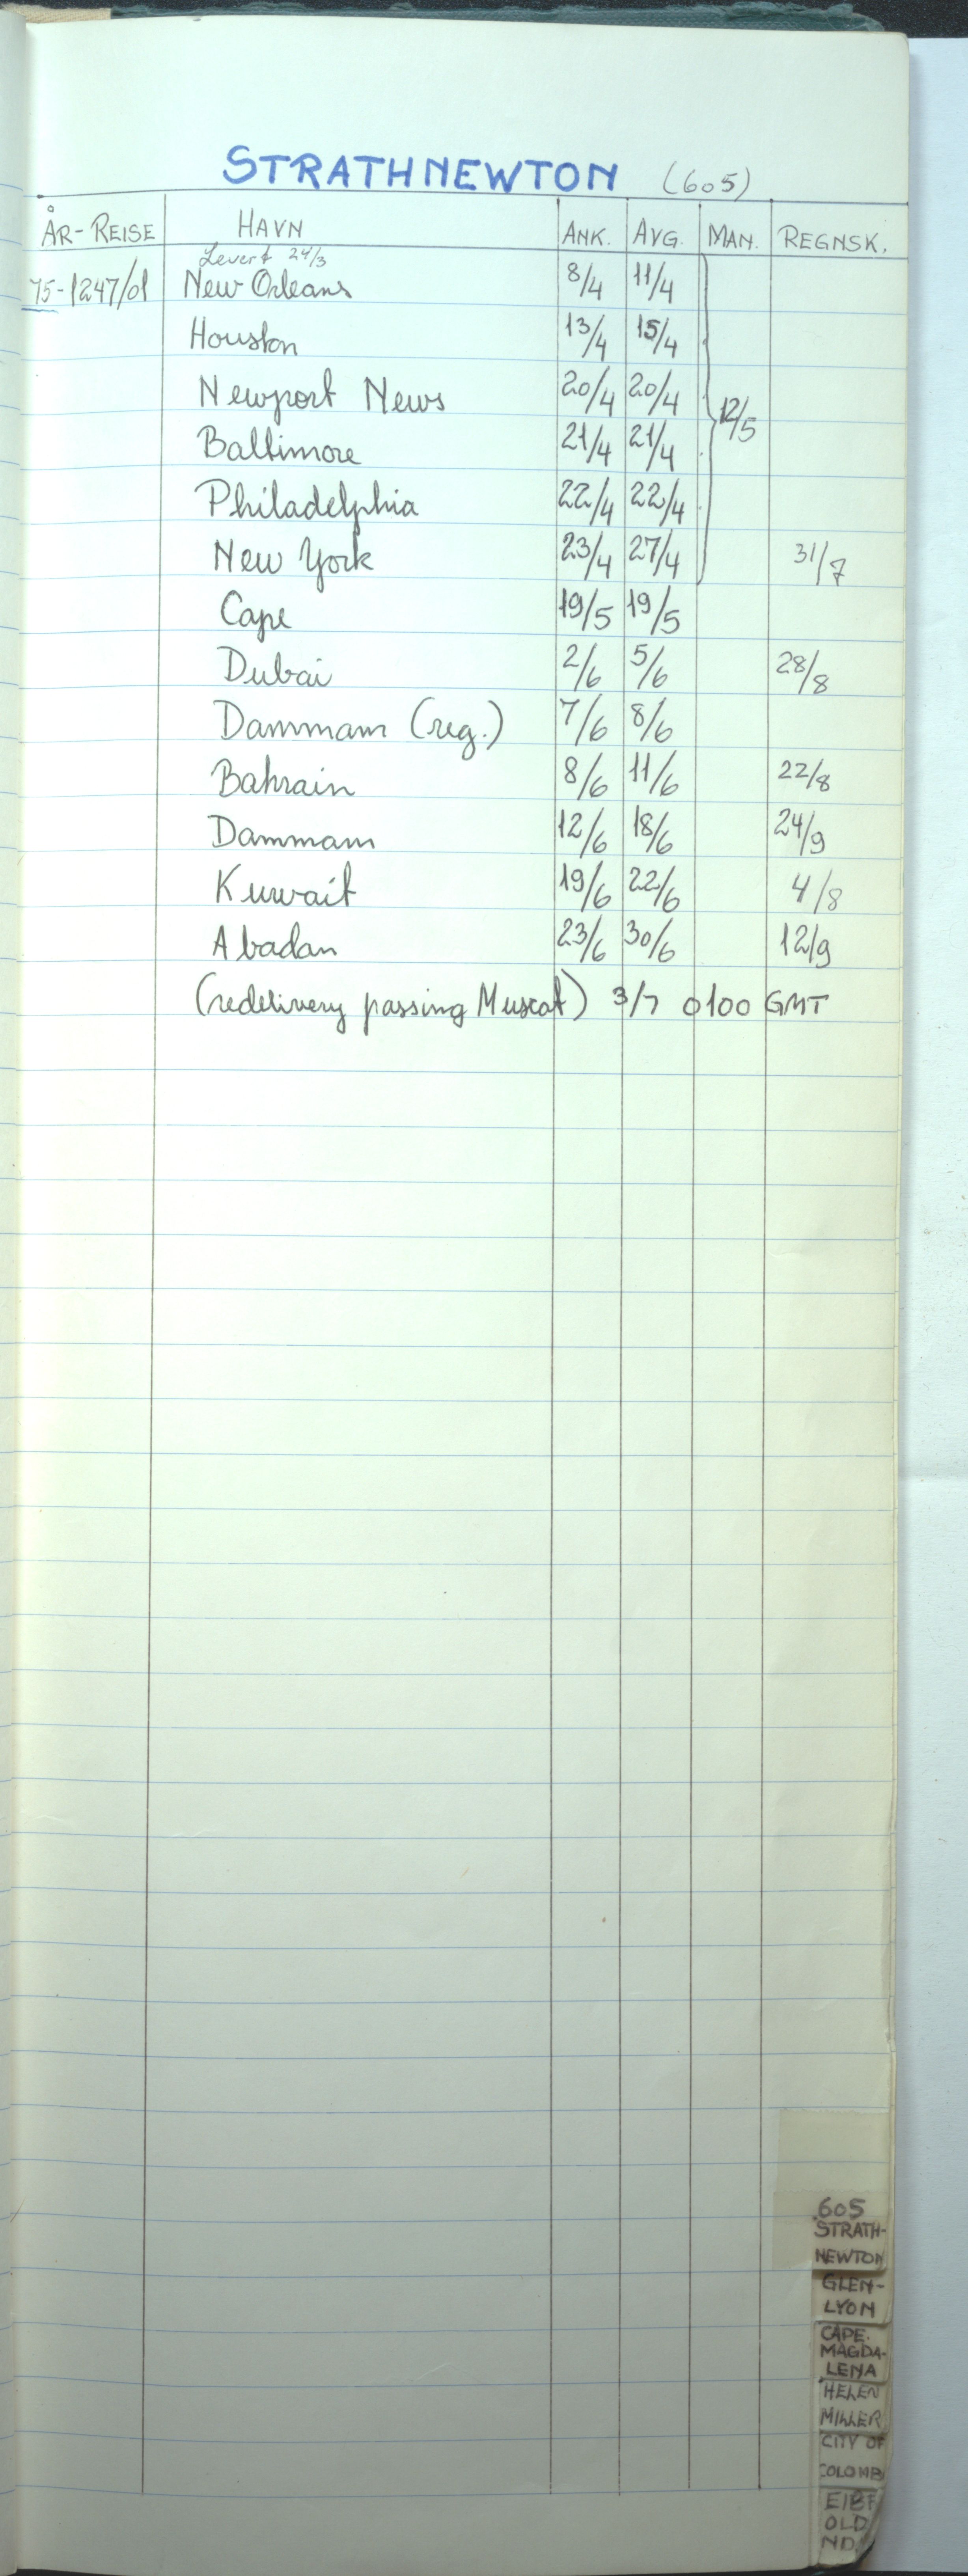 STRATHNEWTON (605)
ÅR-REISE HAVN ANK. AVG. MAN. REGNSK.
Levert 24/3
75-1247/01 New Orleans 8/4 11/4
Houston 13/4 15/4
Newport News 20/4 20/4 12/5
Baltimore 21/4 21/4
Philadelphia 22/4 22/4
New York 23/4 27/4 31/7
Cape 19/5 19/5
Dubai 2/6 5/6 28/8
Dammam (reg.) 7/6 8/6
Bahrain 8/6 11/6 22/8
Dammam 12/6 18/6 24/9
Kuwait 19/6 22/6 4/8
Abadan 23/6 30/6 12/9
(redelivery passing Muscat) 3/7 0100 GMT
605
STRATH-
NEWTON
GLEN-
LYON
CAPE
MAGDA-
LENA
HELEN
MILLER
CITY OF
COLOMB
OLD
ND